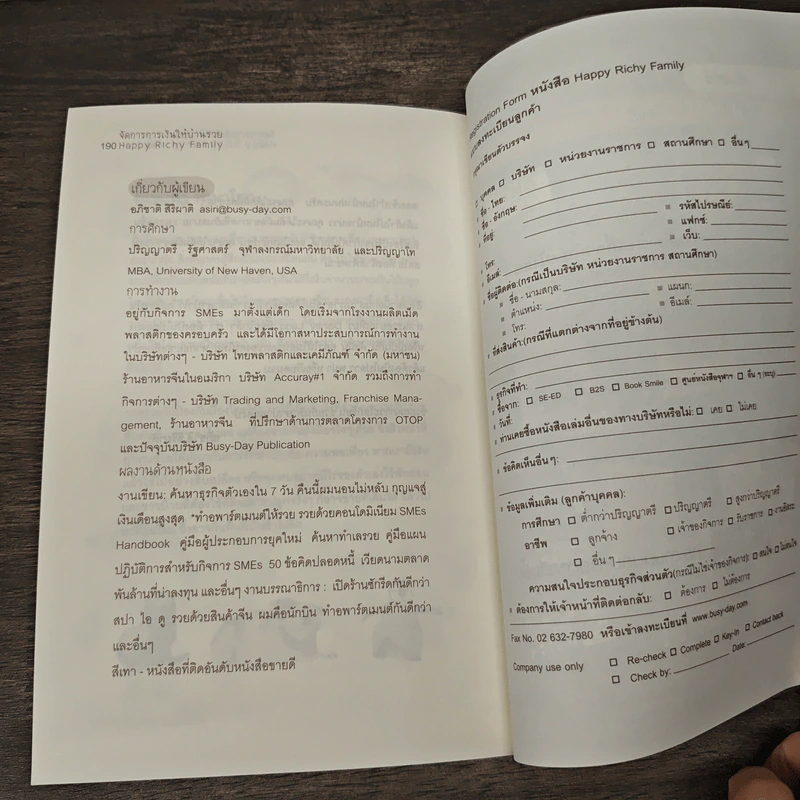 จัดการการเงินให้บ้านรวย
190 Happy Richy Family
เกี่ยวกับผู้เขียน
อภิชาติ สิริผาติ asiri@busy-day.com
การศึกษา
ปริญญาตรี รัฐศาสตร์ จุฬาลงกรณ์มหาวิทยาลัย และปริญญาโท
MBA, University of New Haven, USA
การทำงาน
อยู่กับกิจการ SMEs มาตั้งแต่เด็ก โดยเริ่มจากโรงงานผลิตเม็ด
พลาสติกของครอบครัว และได้มีโอกาสหาประสบการณ์การทำงาน
ในบริษัทต่างๆ - บริษัท ไทยพลาสติกและเคมีภัณฑ์ จำกัด (มหาชน)
ร้านอาหารจีนในอเมริกา บริษัท Accuray#1 จำกัด รวมถึงการทำ
กิจการต่างๆ - บริษัท Trading and Marketing, Franchise Mana-
gement, ร้านอาหารจีน ที่ปรึกษาด้านการตลาดโครงการ OTOP
และปัจจุบันบริษัท Busy-Day Publication
ผลงานด้านหนังสือ
งานเขียน: ค้นหาธุรกิจตัวเองใน 7 วัน คืนนี้ผมนอนไม่หลับ กุญแจสู่
เงินเดือนสูงสุด *ทำอพาร์ตเมนต์ให้รวย รวยด้วยคอนโดมิเนียม SMEs
Handbook คู่มือผู้ประกอบการยุคใหม่ คู่มือทำเลรวย คู่มือแผน
ปฏิบัติการสำหรับกิจการ SMEs 50 ข้อคิดปลอดหนี้ เวียดนามตลาด
พันล้านที่น่าลงทุน และอื่นๆ งานบรรณาธิการ : เปิดร้านซักรีดกันดีกว่า
สปา ไอ ดู รวยด้วยสินค้าจีน ผมคือนักบิน ทำอพาร์ตเมนต์กันดีกว่า
และอื่นๆ
สีเทา - หนังสือที่ติดอันดับหนังสือขายดี
Registration Form หนังสือ Happy Richy Family
ลงทะเบียนลูกค้า
กรุณาเขียนตัวบรรจง
บุคคล บริษัท หน่วยงานราชการ สถานศึกษา อื่นๆ
ชื่อ - ไทย:
ชื่อ - อังกฤษ:
ที่อยู่:
รหัสไปรษณีย์:
โทร: แฟกซ์:
อีเมล์: เว็บ:
ชื่อผู้ติดต่อ:(กรณีเป็นบริษัท หน่วยงานราชการ สถานศึกษา)
ชื่อ - นามสกุล:
ตำแหน่ง: แผนก:
โทร: อีเมล์:
ที่ส่งสินค้า:(กรณีที่แตกต่างจากที่อยู่ข้างต้น)
ธุรกิจที่ทำ:
ซื้อจาก: SE-ED B2S Book Smile ศูนย์หนังสือจุฬาฯ อื่น ๆ (ระบุ)
วันที่:
ท่านเคยซื้อหนังสือเล่มอื่นของทางบริษัทหรือไม่: เคย ไม่เคย
ข้อคิดเห็นอื่นๆ:
ข้อมูลเพิ่มเติม (ลูกค้าบุคคล):
การศึกษา ต่ำกว่าปริญญาตรี ปริญญาตรี สูงกว่าปริญญาตรี
อาชีพ ลูกจ้าง เจ้าของกิจการ รับราชการ งานอิสระ
อื่น ๆ
ความสนใจประกอบธุรกิจส่วนตัว(กรณีไม่ใช่เจ้าของกิจการ): สนใจ ไม่สนใจ
ต้องการให้เจ้าหน้าที่ติดต่อกลับ: ต้องการ ไม่ต้องการ
Fax No. 02 632-7980 หรือเข้าลงทะเบียนที่ www.busy-day.com
Company use only Re-check Complete Key-in Contact back
Check by: Date: